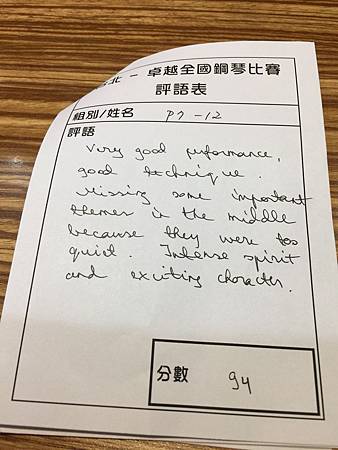 北 - 卓越全國鋼琴比賽
評語表
組別/姓名 P7-12
評語
Very good performance,
good technique.
Missing some important
themes in the middle
because they were too
quiet. Intense spirit
and exciting character.
分數 94